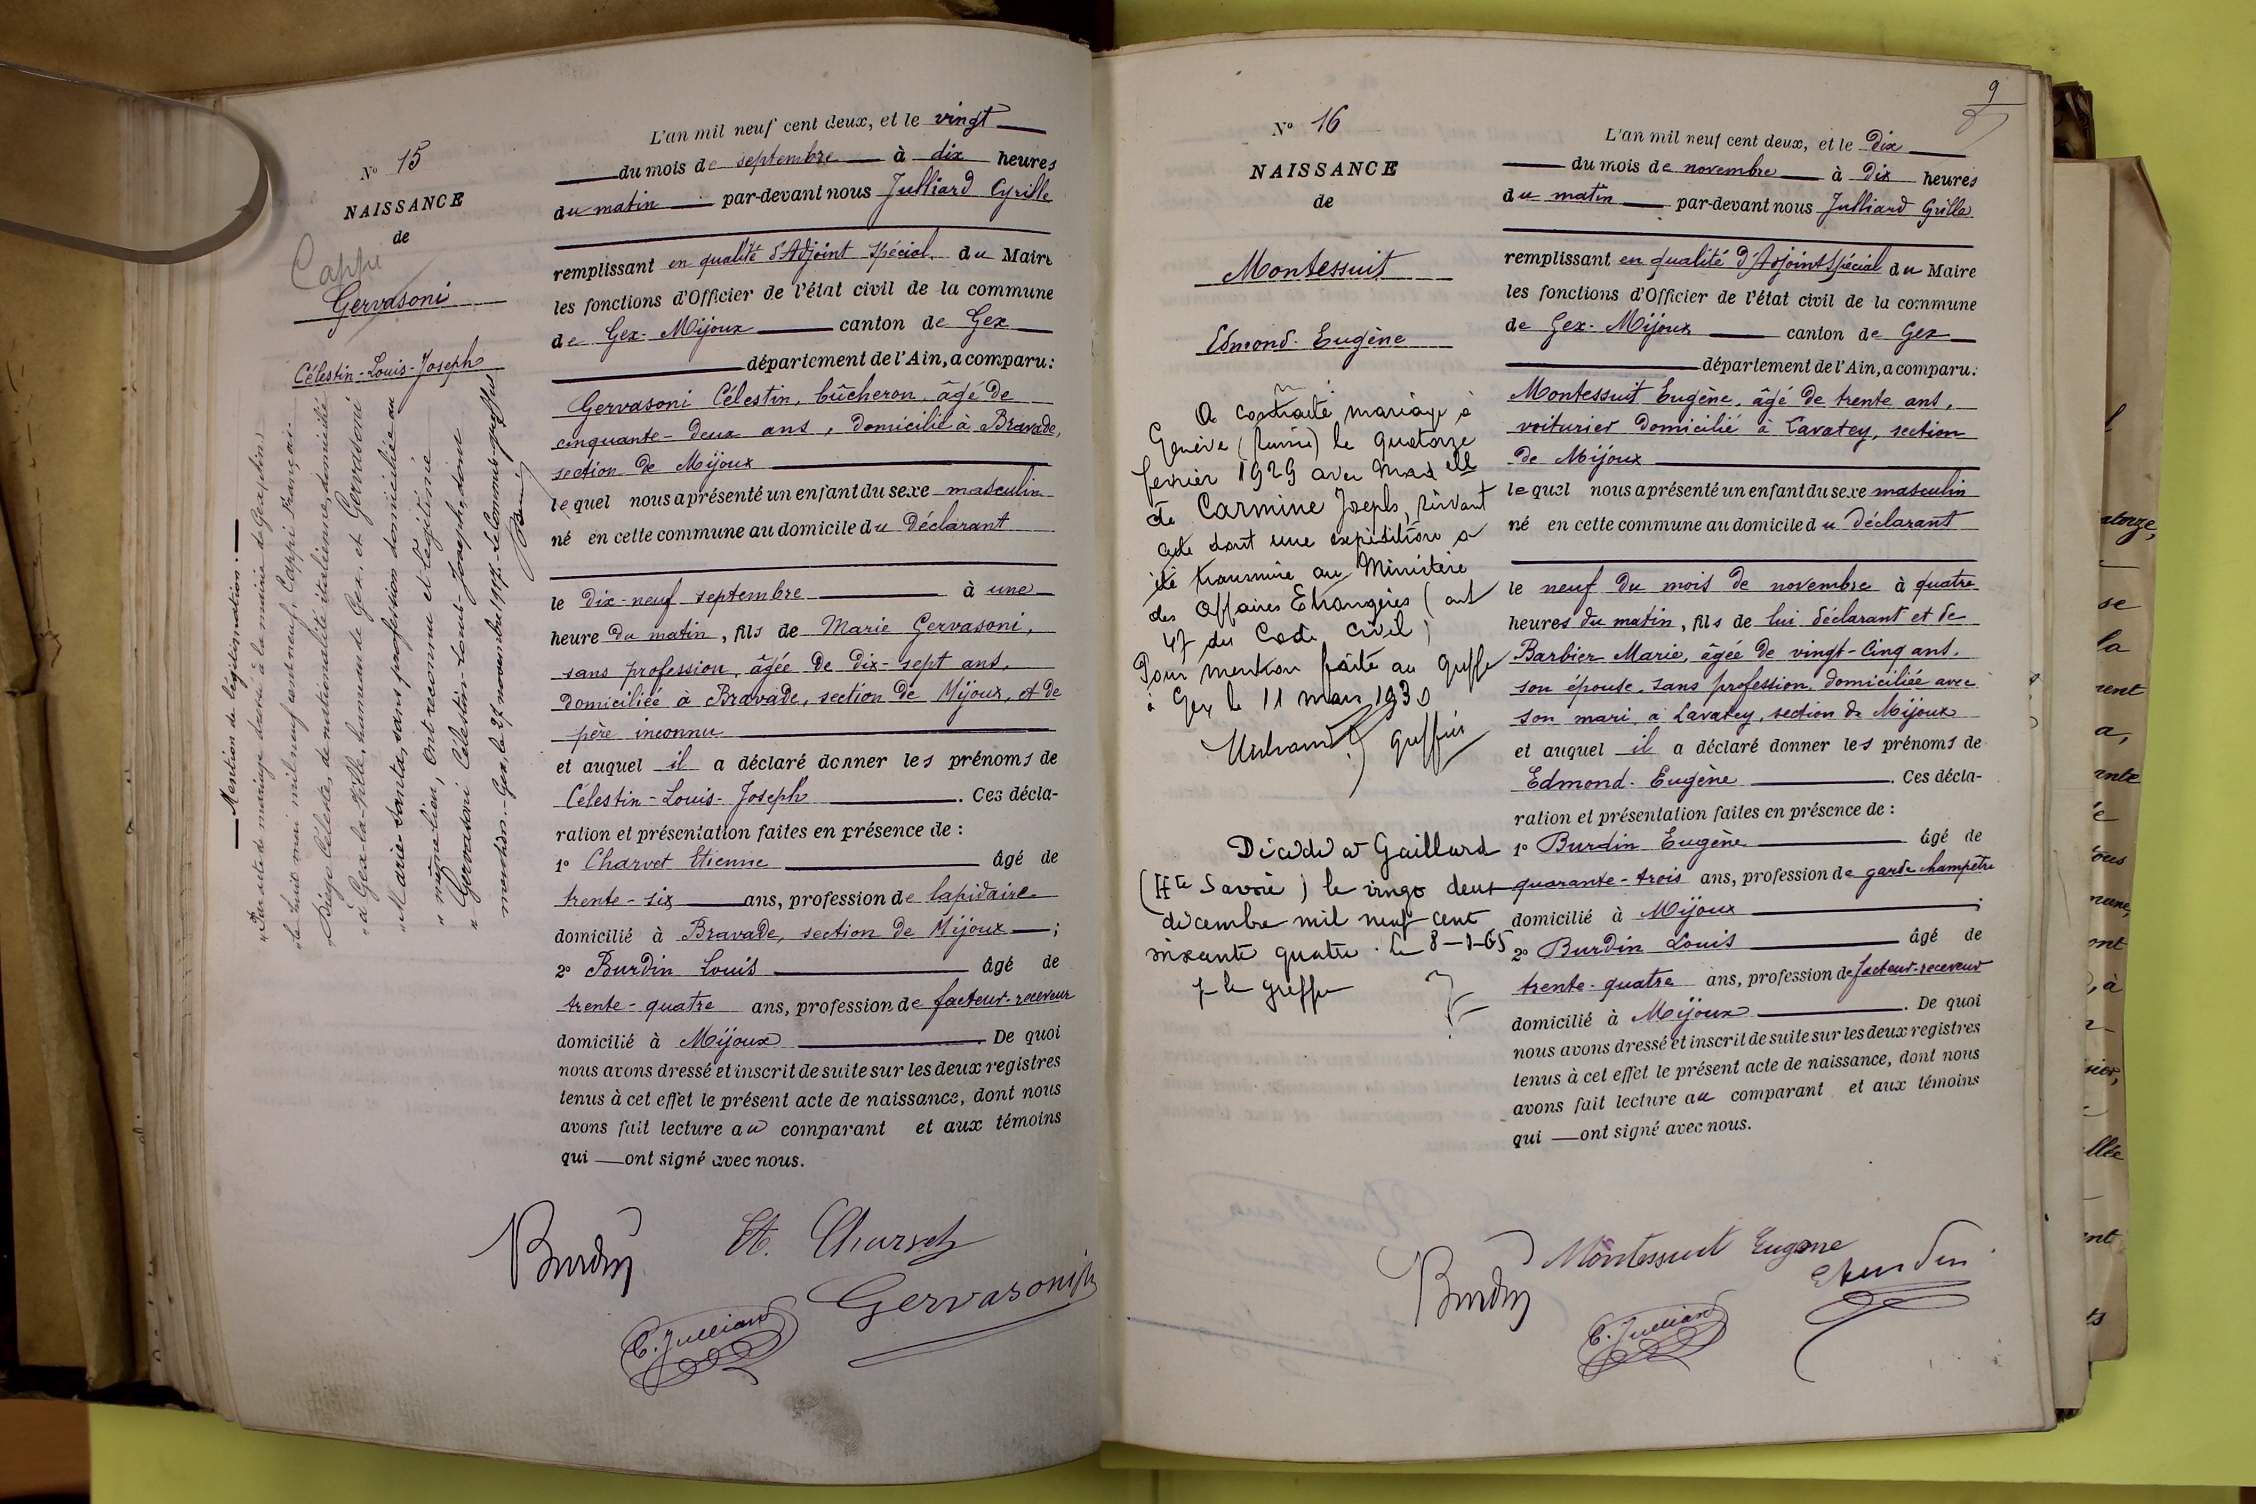 N° 15
NAISSANCE
de
Cappi
Gervasoni
Célestin-Louis-Joseph
— Mention de légitimation. —
"Par acte de mariage dressé à la mairie de Gex (Ain)
"le huit mai mil neuf cent neuf, Cappi François-
"Céleste, de nationalité italienne, domicilié
"à Gex-la-Ville, hameau de Gex, et Gervasoni
"Marie-Santa, sans profession domiciliée au
"même lieu, ont reconnu et légitimé
"Gervasoni Célestin-Louis-Joseph, dont
mention. - Gex, le 27 novembre 1917. Le Commis-greffier
L'an mil neuf cent deux, et le vingt
du mois de septembre à dix heures
du matin par-devant nous Julliard Cyrille
remplissant en qualité d'Adjoint spécial du Maire
les fonctions d'Officier de l'état civil de la commune
de Gex-Mijoux canton de Gex
département de l'Ain, a comparu:
Gervasoni Célestin, bûcheron, âgé de
cinquante-deux ans, domicilié à Bravade,
section de Mijoux
lequel nous a présenté un enfant du sexe masculin
né en cette commune au domicile du déclarant
le dix-neuf septembre à une
heure du matin, fils de Marie Gervasoni,
sans profession, âgée de dix-sept ans,
domiciliée à Bravade, section de Mijoux, et de
père inconnu
et auquel il a déclaré donner les prénoms de
Célestin-Louis-Joseph. Ces décla-
ration et présentation faites en présence de :
1° Charvet Etienne âgé de
trente-six ans, profession de lapidaire
domicilié à Bravade, section de Mijoux ;
2° Burdin Louis âgé de
trente-quatre ans, profession de facteur-receveur
domicilié à Mijoux De quoi
nous avons dressé et inscrit de suite sur les deux registres
tenus à cet effet le présent acte de naissance, dont nous
avons fait lecture au comparant et aux témoins
qui — ont signé avec nous.
Burdin Et. Charvet
Gervasoni
C. Julliard
9
N° 16
NAISSANCE
de
Montessuit
Edmond-Eugène
A contracté mariage à
Genève (Suisse) le quatorze
février 1929 avec Mad elle
de Carmine Joseph, suivant
acte dont une expédition a
été transmise au Ministère
des Affaires Etrangères (art
47 du Code civil)
Pour mention faite au greffe
à Gex le 11 mars 1930
greffier
Décédé à Gaillard
(Hte Savoie) le vingt deux
décembre mil neuf cent
soixante quatre. Le 8-1-65
p. le greffier
L'an mil neuf cent deux, et le dix
du mois de novembre à dix heures
du matin par-devant nous Julliard Cyrille
remplissant en qualité d'Adjoint Spécial du Maire
les fonctions d'Officier de l'état civil de la commune
de Gex-Mijoux canton de Gex
département de l'Ain, a comparu:
Montessuit Eugène, âgé de trente ans,
voiturier domicilié à Lavatey, section
de Mijoux
lequel nous a présenté un enfant du sexe masculin
né en cette commune au domicile du déclarant
le neuf du mois de novembre à quatre
heures du matin, fils de lui déclarant et de
Barbier Marie, âgée de vingt-cinq ans,
son épouse, sans profession, domiciliée avec
son mari à Lavatey, section de Mijoux
et auquel il a déclaré donner les prénoms de
Edmond-Eugène. Ces décla-
ration et présentation faites en présence de :
1° Burdin Eugène âgé de
quarante-trois ans, profession de garde champêtre
domicilié à Mijoux ;
2° Burdin Louis âgé de
trente-quatre ans, profession de facteur-receveur
domicilié à Mijoux. De quoi
nous avons dressé et inscrit de suite sur les deux registres
tenus à cet effet le présent acte de naissance, dont nous
avons fait lecture au comparant et aux témoins
qui — ont signé avec nous.
Burdin Montessuit Eugène
E Burdin
C. Julliard